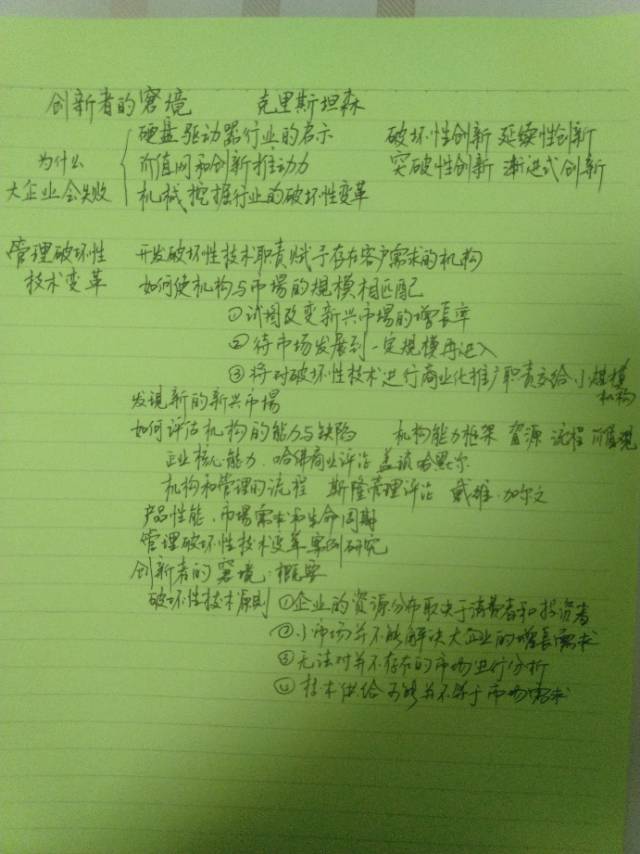 创新者的窘境 克里斯坦森
硬盘驱动器行业的启示 破坏性创新 延续性创新
为什么 价值网和创新推动力 突破性创新 渐进式创新
大企业会失败 机械挖掘行业的破坏性变革
管理破坏性 开发破坏性技术职责赋予存在客户需求的机构
技术变革 如何使机构与市场的规模相匹配
①试图改变新兴市场的增长率
②待市场发展到一定规模再进入
③将对破坏性技术进行商业化推广职责交给小规模
机构
发现新的新兴市场
如何评估机构的能力与缺陷 机构能力框架 资源 流程 价值观
企业核心能力 哈佛商业评论 哈默尔
机构和管理的流程 斯隆管理评论 戴维·加尔文
产品性能、市场需求和生命周期
管理破坏性技术变革案例研究
创新者的窘境:概要
破坏性技术原则 ①企业的资源分布取决于消费者和投资者
②小市场并不能解决大企业的增长需求
③无法对并不存在的市场进行分析
④技术供给可能并不等于市场需求